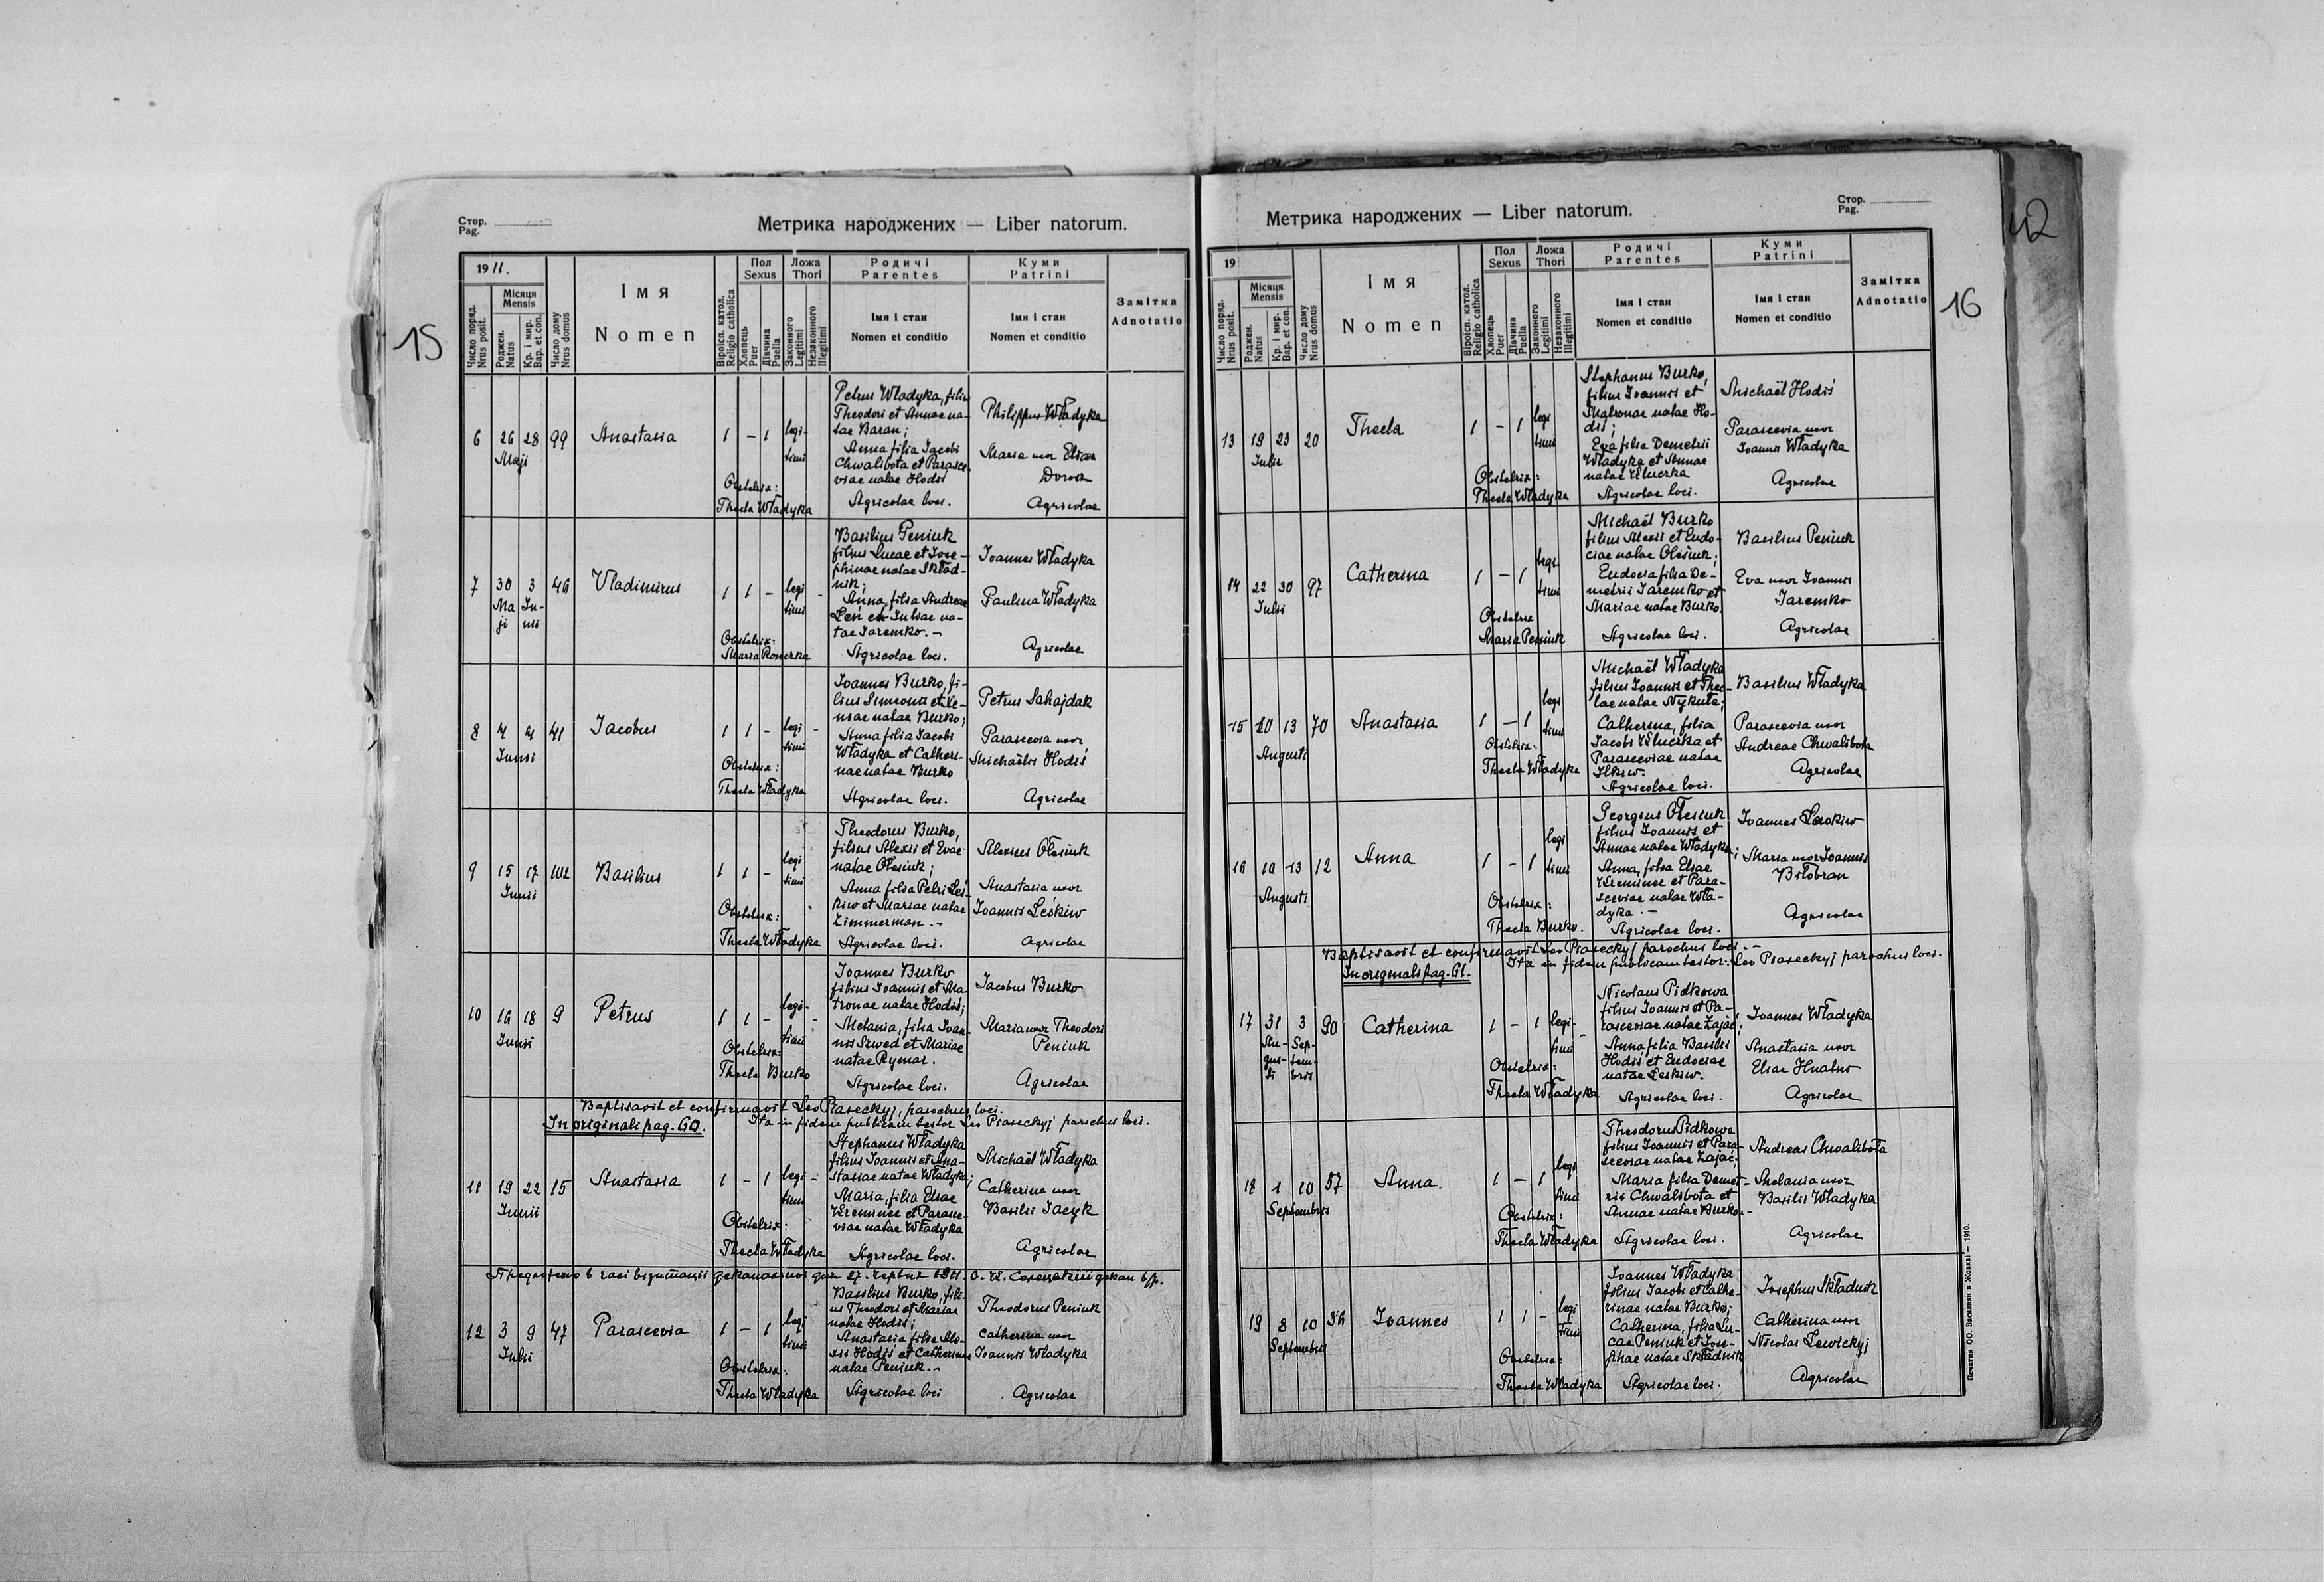 Стор.
Pag.
Метрика народжених — Liber natorum.
15
1911.
Місяця
Mensis
Число поряд.
Nrus posit.
Роджен.
Natus
Кр. і мир.
Bap. et con.
Число дому
Nrus domus
Імя
Nomen
Віроісп. катол.
Religio catholica
Пол
Sexus
Хлопець
Puer
Дівчина
Puella
Ложа
Thori
Законного
Legitimi
Незаконного
Illegitimi
Родичі
Parentes
Імя і стан
Nomen et conditio
Куми
Patrini
Імя і стан
Nomen et conditio
Замітка
Adnotatio
6 26 28 99 Anastasia 1 – 1 legi-
timi
Maji
Obstetrix:
Thecla Władyka
Petrus Władyka, filius
Theodori et Annae na-
tae Baran;
Anna filia Jacobi
Chwalibota et Parasce-
viae natae Hodis
Agricolae loci.
Philippus Władyka
Maria uxor Eliae
Dorosz
Agricolae
7 30 3 46 Vladimirus 1 1 – legi
timi
Ma- Ju-
ji nii
Obstetrix:
Maria
Basilius Peniuk
filius Lucae et Jose-
phinae natae Skład-
nik;
Anna, filia Andreae
Leń et Juliae na-
tae Jaremko. –
Agricolae loci.
Joannes Władyka
Paulina Władyka
Agricolae
8 4 4 41 Jacobus 1 1 – legi-
timi
Junii
Obstetrix:
Thecla Władyka
Joannes Burko, fi-
lius Simeonis et Xe-
niae natae Burko;
Anna filia Jacobi
Władyka et Catheri-
nae natae Burko
Agricolae loci.
Petrus Sahajdak
Parascevia uxor
Michaëlis Hodiś
Agricolae
9 15 17 102 Basilius 1 1 – legi
timi
Junii
Obstetrix:
Thecla Władyka
Theodorus Burko,
filius Alexii et Evae
natae Olesiuk;
Anna filia Petri Leś-
kiw et Mariae natae
Zimmerman. –
Agricolae loci.
Alexius Olesiuk
Anastasia uxor
Joannis Leśkiw
Agricolae
10 16 18 9 Petrus 1 1 – legi-
timi
Junii
Obstetrix:
Thecla Burko
Joannes Burko
filius Joannis et Ma-
tronae natae Hodiś;
Melania, filia Joan-
nis Szwed et Mariae
natae Rymar.
Agricolae loci.
Jacobus Burko
Maria uxor Theodori
Peniuk
Agricolae
Baptisavit et confirmavit Leo Piaseckyj, parochus loci.
In originali pag. 60. Ita in fidem publicam testor Leo Piaseckyj parochus loci.
11 19 22 15 Anastasia 1 – 1 legi-
timi
Junii
Obstetrix:
Thecla Władyka
Stephanus Władyka
filius Joannis et Ana-
stasiae natae Władyka;
Maria, filia Eliae
Kreminec et Parasce-
viae natae Władyka
Agricolae loci.
Michaël Władyka
Catherina uxor
Basilii Jacyk
Agricolae
12 3 9 47 Parascevia 1 – 1 legi
timi
Julii
Obstetrix:
Thecla Władyka
Basilius Burko, fili-
us Theodori et Mariae
natae Hodis;
Anastasia filia Ale-
xii Hodiś et Catherinae
natae Peniuk. –
Agricolae loci
Theodorus Peniuk
Catherina uxor
Joannis Władyka
Agricolae
Стор.
Pag.
Метрика народжених — Liber natorum.
42
16
19
Місяця
Mensis
Число поряд.
Nrus posit.
Роджен.
Natus
Кр. і мир.
Bap. et con.
Число дому
Nrus domus
Імя
Nomen
Віроісп. катол.
Religio catholica
Пол
Sexus
Хлопець
Puer
Дівчина
Puella
Ложа
Thori
Законного
Legitimi
Незаконного
Illegitimi
Родичі
Parentes
Імя і стан
Nomen et conditio
Куми
Patrini
Імя і стан
Nomen et conditio
Замітка
Adnotatio
13 19 23 20 Thecla 1 – 1 legi
timi
Julii
Obstetrix:
Thecla Władyka
Stephanus Burko,
filius Joannis et
Matronae natae Ho-
dis;
Eva filia Demetrii
Władyka et Annae
natae
Agricolae loci.
Michaël Hodiś
Parascevia uxor
Joannis Władyka
Agricolae
14 22 30 97 Catherina 1 – 1 legi-
timi
Julii
Obstetrix
Maria Peniuk
Michaël Burko
filius Alexii et Eudo-
ciae natae Olesiuk;
Eudocia filia De-
metrii Jaremko et
Mariae natae Burko.
Agricolae loci.
Basilius Peniuk
Eva uxor Joannis
Jaremko
Agricolae
15 10 13 70 Anastasia 1 – 1 legi
timi
Augusti
Obstetrix:
Thecla Władyka
Michaël Władyka
filius Joannis et Thec-
lae natae Nykuta;
Catherina, filia
Jacobi et
Parasceviae natae
Ilkiw.
Agricolae loci.
Basilius Władyka
Parascevia uxor
Andreae Chwalibota
Agricolae
16 10 13 12 Anna 1 – 1 legi
timi
Augusti
Obstetrix:
Thecla Burko.
Georgius Olesiuk
filius Joannis et
Annae natae Władyka;
Anna, filia Eliae
Kreminec et Para-
sceviae natae Wła-
dyka. –
Agricolae loci.
Joannes Leskiw
Maria uxor Joannis
Biłobran
Agricolae
Baptisavit et confirmavit Leo Piaseckyj parochus loci. –
In originali pag. 61. Ita in fidem publicam testor: Leo Piaseckyj parochus loci.
17 31 3 90 Catherina 1 – 1 legi-
timi
Au- Sep-
gus- tem-
ti bris
Obstetrix:
Thecla Władyka
Nicolaus Pidkowa
filius Joannis et Pa-
rasceviae natae Zając;
Anna filia Basilii
Hodiś et Eudociae
natae Leskiw.
Agricolae loci.
Joannes Władyka
Anastasia uxor
Eliae Hnatiw
Agricolae
18 1 10 57 Anna. 1 – 1 legi
timi
Septembris
Obstetrix:
Thecla Władyka
Theodorus Pidkowa
filius Joannis et Para-
sceviae natae Zając;
Maria filia Demet-
rii Chwalibota et
Annae natae Burko. –
Agricolae loci.
Andreas Chwalibota
Melania uxor
Basilii Władyka
Agricolae
19 8 10 36 Joannes 1 1 – legi
timi
Septembris
Obstetrix:
Thecla Władyka
Joannes Władyka
filius Jacobi et Cathe-
rinae natae Burko;
Catherina, filia Lu-
cae Peniuk et Jose-
phae natae Składnik
Agricolae loci.
Josephus Składnik
Catherina uxor
Nicolai Lewickyj
Agricolae
Печатня ОО. Василиян в Жовкві — 1910.